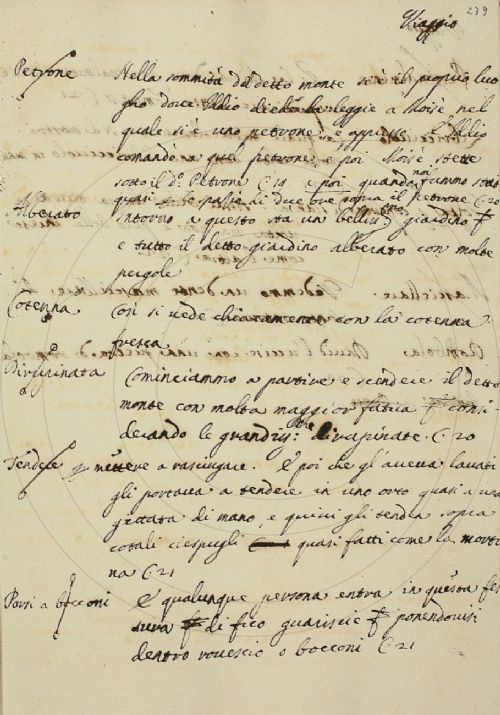 239
Viaggio
Petrone Nella sommità del detto monte si è il proprio luo
gho dove Iddio diede la leggie a Moise nel
quale si è uno petrone, e appresso Iddio
comandò a quel petrone, e poi Moise stette
sotto il d.º Petrone C. 19 e poi quando fummo sotto
quasi le passi di due ove sopra il petrone C. 20
Alberato Intorno a questo sta un belliss.mo giardino
e tutto il detto giardino alberato con molte
pergole
Cotenna Così si vede chiaramente con la cotenna
fresca
Dirupinata Cominciammo a partire e scendere il detto
monte con molta maggior fatica consi
derando le grandiss: dirupinate. C. 20
Tendere mettere a rasciugare. E poi che gl' aveva lavati
gli portava a tendere in uno orto quasi a una
gittata di mano, e quivi gli tendea sopra
cotali ciespugli quasi fatti come la morti
na C. 21
Porsi a bocconi E qualunque persona entra in questa fes
sura di fico guariscie ponendovisi
dentro rovescio o bocconi C. 21